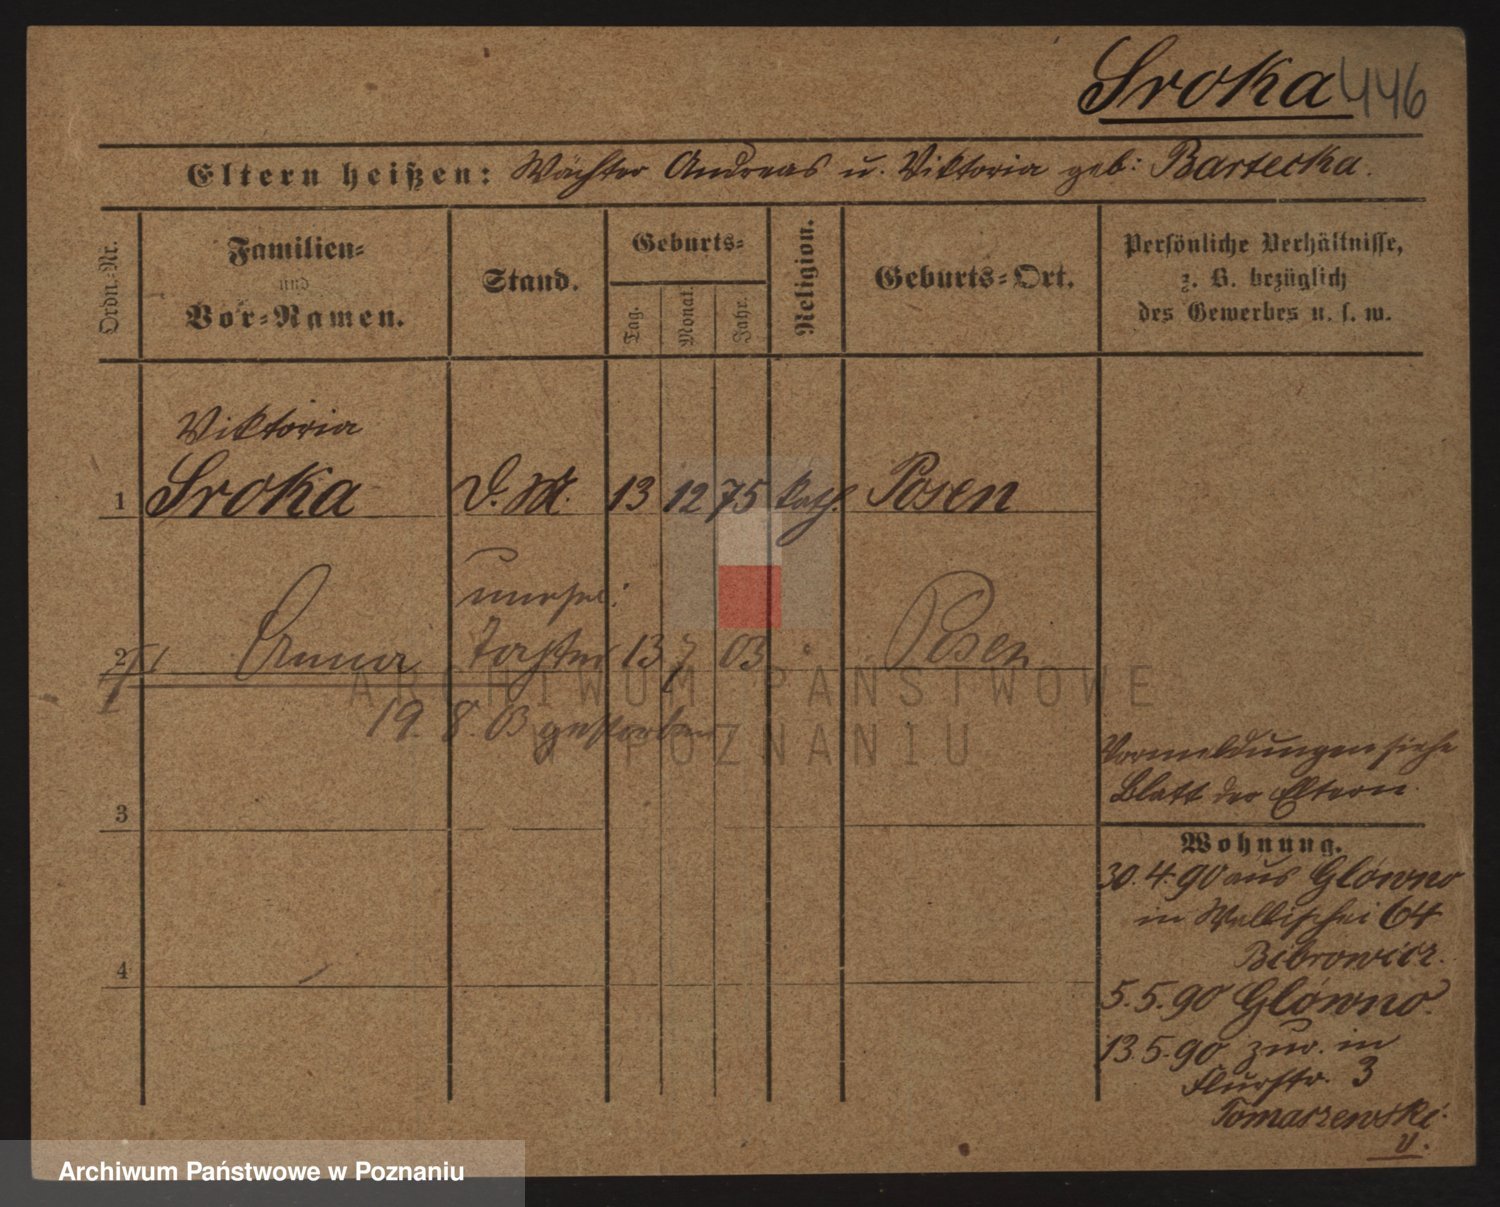 Sroka 446
Eltern heißen: Wächter Andreas u. Viktoria geb: Bartecka.
Ordn.-Nr.
Familien-
und
Vor-Namen.
Stand.
Geburts-
Tag.
Monat.
Jahr.
Religion.
Geburts-Ort.
Persönliche Verhältnisse,
z. B. bezüglich
des Gewerbes u. s. w.
Viktoria
1 Sroka D. M. 13 12 75 kath. Posen
unehel:
2 Tochter 13 7 03 Posen
19. 8. 03 gestorben
Vormeldungen siehe
Blatt der Eltern.
3
Wohnung.
30. 4. 90 aus Glówno
in Wallischei 64
Bibrowicz.
4
5. 5. 90 Glówno.
13. 5. 90 zur. in
Flurstr. 3
Tomaszewski.
ARCHIWUM PAŃSTWOWE
W POZNANIU
Archiwum Państwowe w Poznaniu